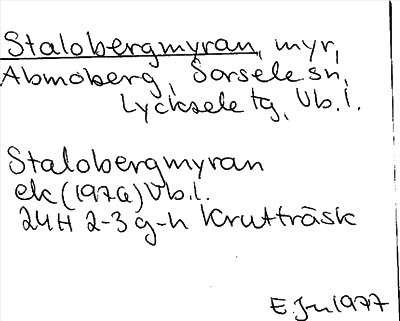 Stalobergmyran, myr,
Abmoberg, Sorsele sn,
Lycksele tg, Vb.l.
Stalobergmyran
ek (1976) Vb.l.
24H 2-3 g-h Krutträsk
E.Jn 1977